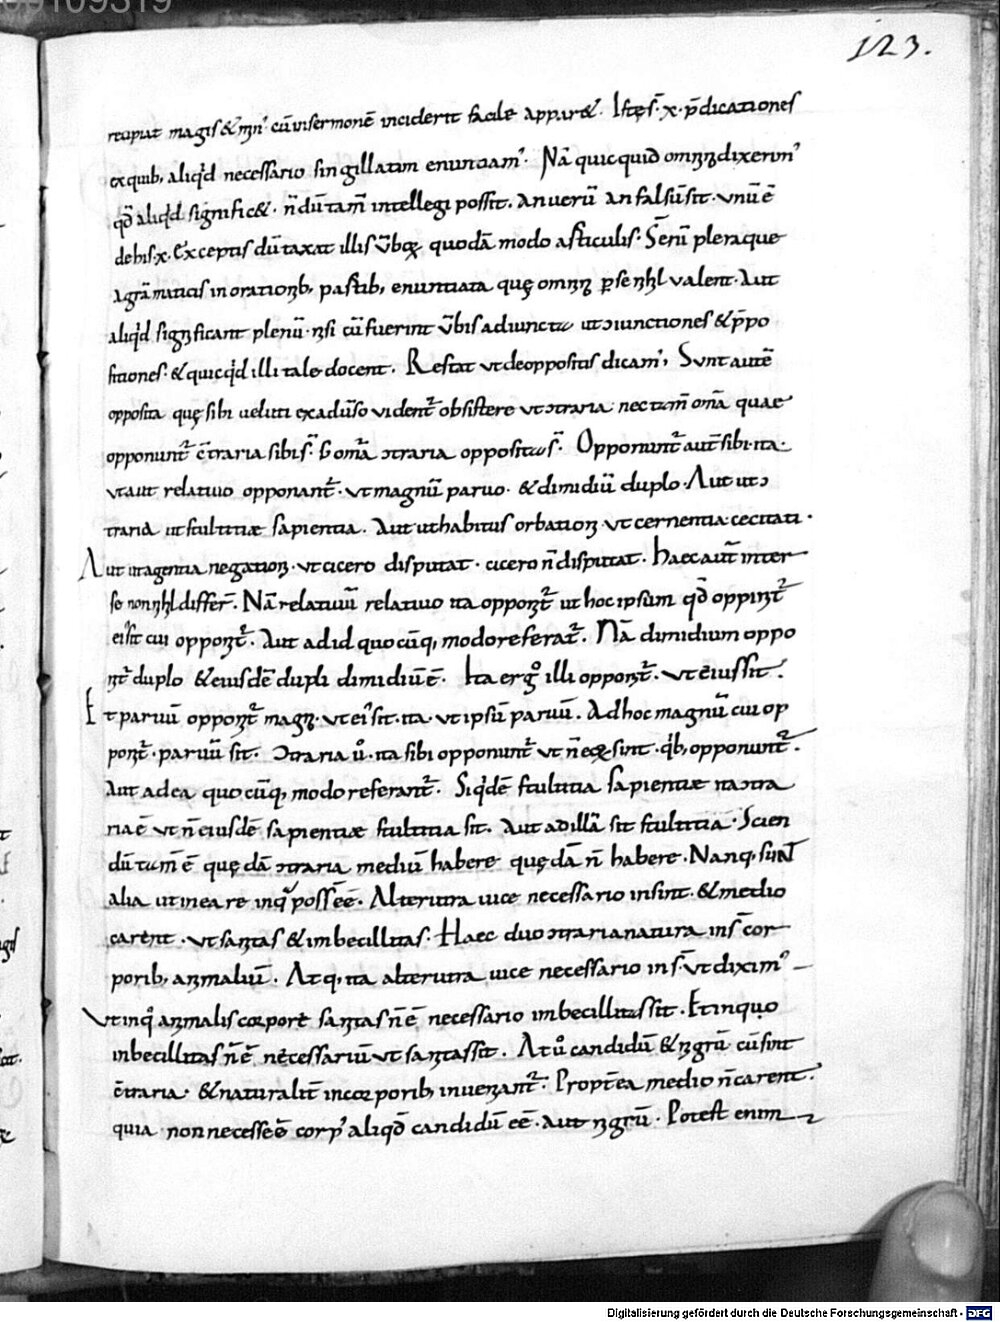 00109319
123.
recipit magis & min᾽ cū in sermonē inciderit facile appar&. Istęs̄ · x · p̄dicationes
ex quib; aliq̇d necessario singillatim enuntiam᾽. Nā quicquid omnino dixerim᾽
qd̄ aliq̇d signific&. n̄ dū tam̄ intellegi possit. an uerū an falsū sit. unū ē
de his · x · Exceptis dū taxat illis v̄boꝝ quodā modo articulis. Sen̄i pleraque
a grāmaticis in orationib; partib; enuntiata quę omnino ꝑ se nihil valent. Aut
aliq̇d significant plenū nisi cū fuerint v̄bis adiuncta ut ↄiunctiones & p̄po
sitiones. & quicq̇d illi tale docent. Restat ut de oppositis dicam᾽. Sunt autē
opposita quę sibi ueluti ex aduso vident̄ obsistere ut ↄtraria nec tam̄ om̄a quae
opponunt̄ ↄ̄traria sibi s̄. s; om̄a ↄtraria opposita s̄. Opponunt̄ aut̄ sibi ita.
ut aut relatiuo opponant̄. ut magnū paruo. & dimidiū duplo. Aut ut ↄ
traria ut stultitiae sapientia. Aut ut habitus orbationi ut cernentia cecitati.
Aut ut agentia negationi. ut cicero disputat. cicero n̄ disputat. Haec aut̄ inter
se non nihil differ̄. Nā relatiuū relatiuo ita opponit̄ ut hoc ipsum qd̄ opponit̄
ei sit cui opponit̄. Aut ad id quocūq; modo referat̄. Nā dimidium oppo
nit̄ duplo & eiusdē dupli dimidiū ē. Ita erg̊ illi opponit̄. ut ei ussit.
Et paruū opponit̄ magno. ut ei sit. ita. ut ipsū paruū. Ad hoc magnū cui op
ponit̄. paruū sit. ↄtraria ů. ita sibi opponunt̄ ut n̄ eoꝝ sint. q̇b; opponunt̄.
Aut ad ea quocūq; modo referant̄. Siq̇dē stultitia sapientiae ita ↄtra
ria ē ut n̄ eiusdē sapientiae stultitia sit. Aut ad illā sit stultitia. Scien
dū tam̄ ē quędā ↄtraria mediū habere quędā n̄ habere. Nanq; sunt
alia ut in ea re inq᾽ poss̄ ēē. Alterutra uice necessario insint. & medio
carent. ut sanitas & imbecillitas. Haec duo ↄtraria natura ins̄ cor
porib; animaliū. Atq; ita alterutra uice necessario ins̄. ut diximꝰ
Ut in q̊ animalis corpore sanitas n̄ ē necessario imbecillitas sit. Et in quo
inbecillitas n̄ ē necessariū ut sanitas sit. At ů candidū & nigrū cū sint
ↄ̄traria. & naturalit̄ in corporib; inueniant̄. Propt̄ea medio n̄ carent.
quia non necesse ē corp᾽ aliqd̄ candidū ēē. aut nigrū. Potest enim
Digitalisierung gefördert durch die Deutsche Forschungsgemeinschaft - DFG